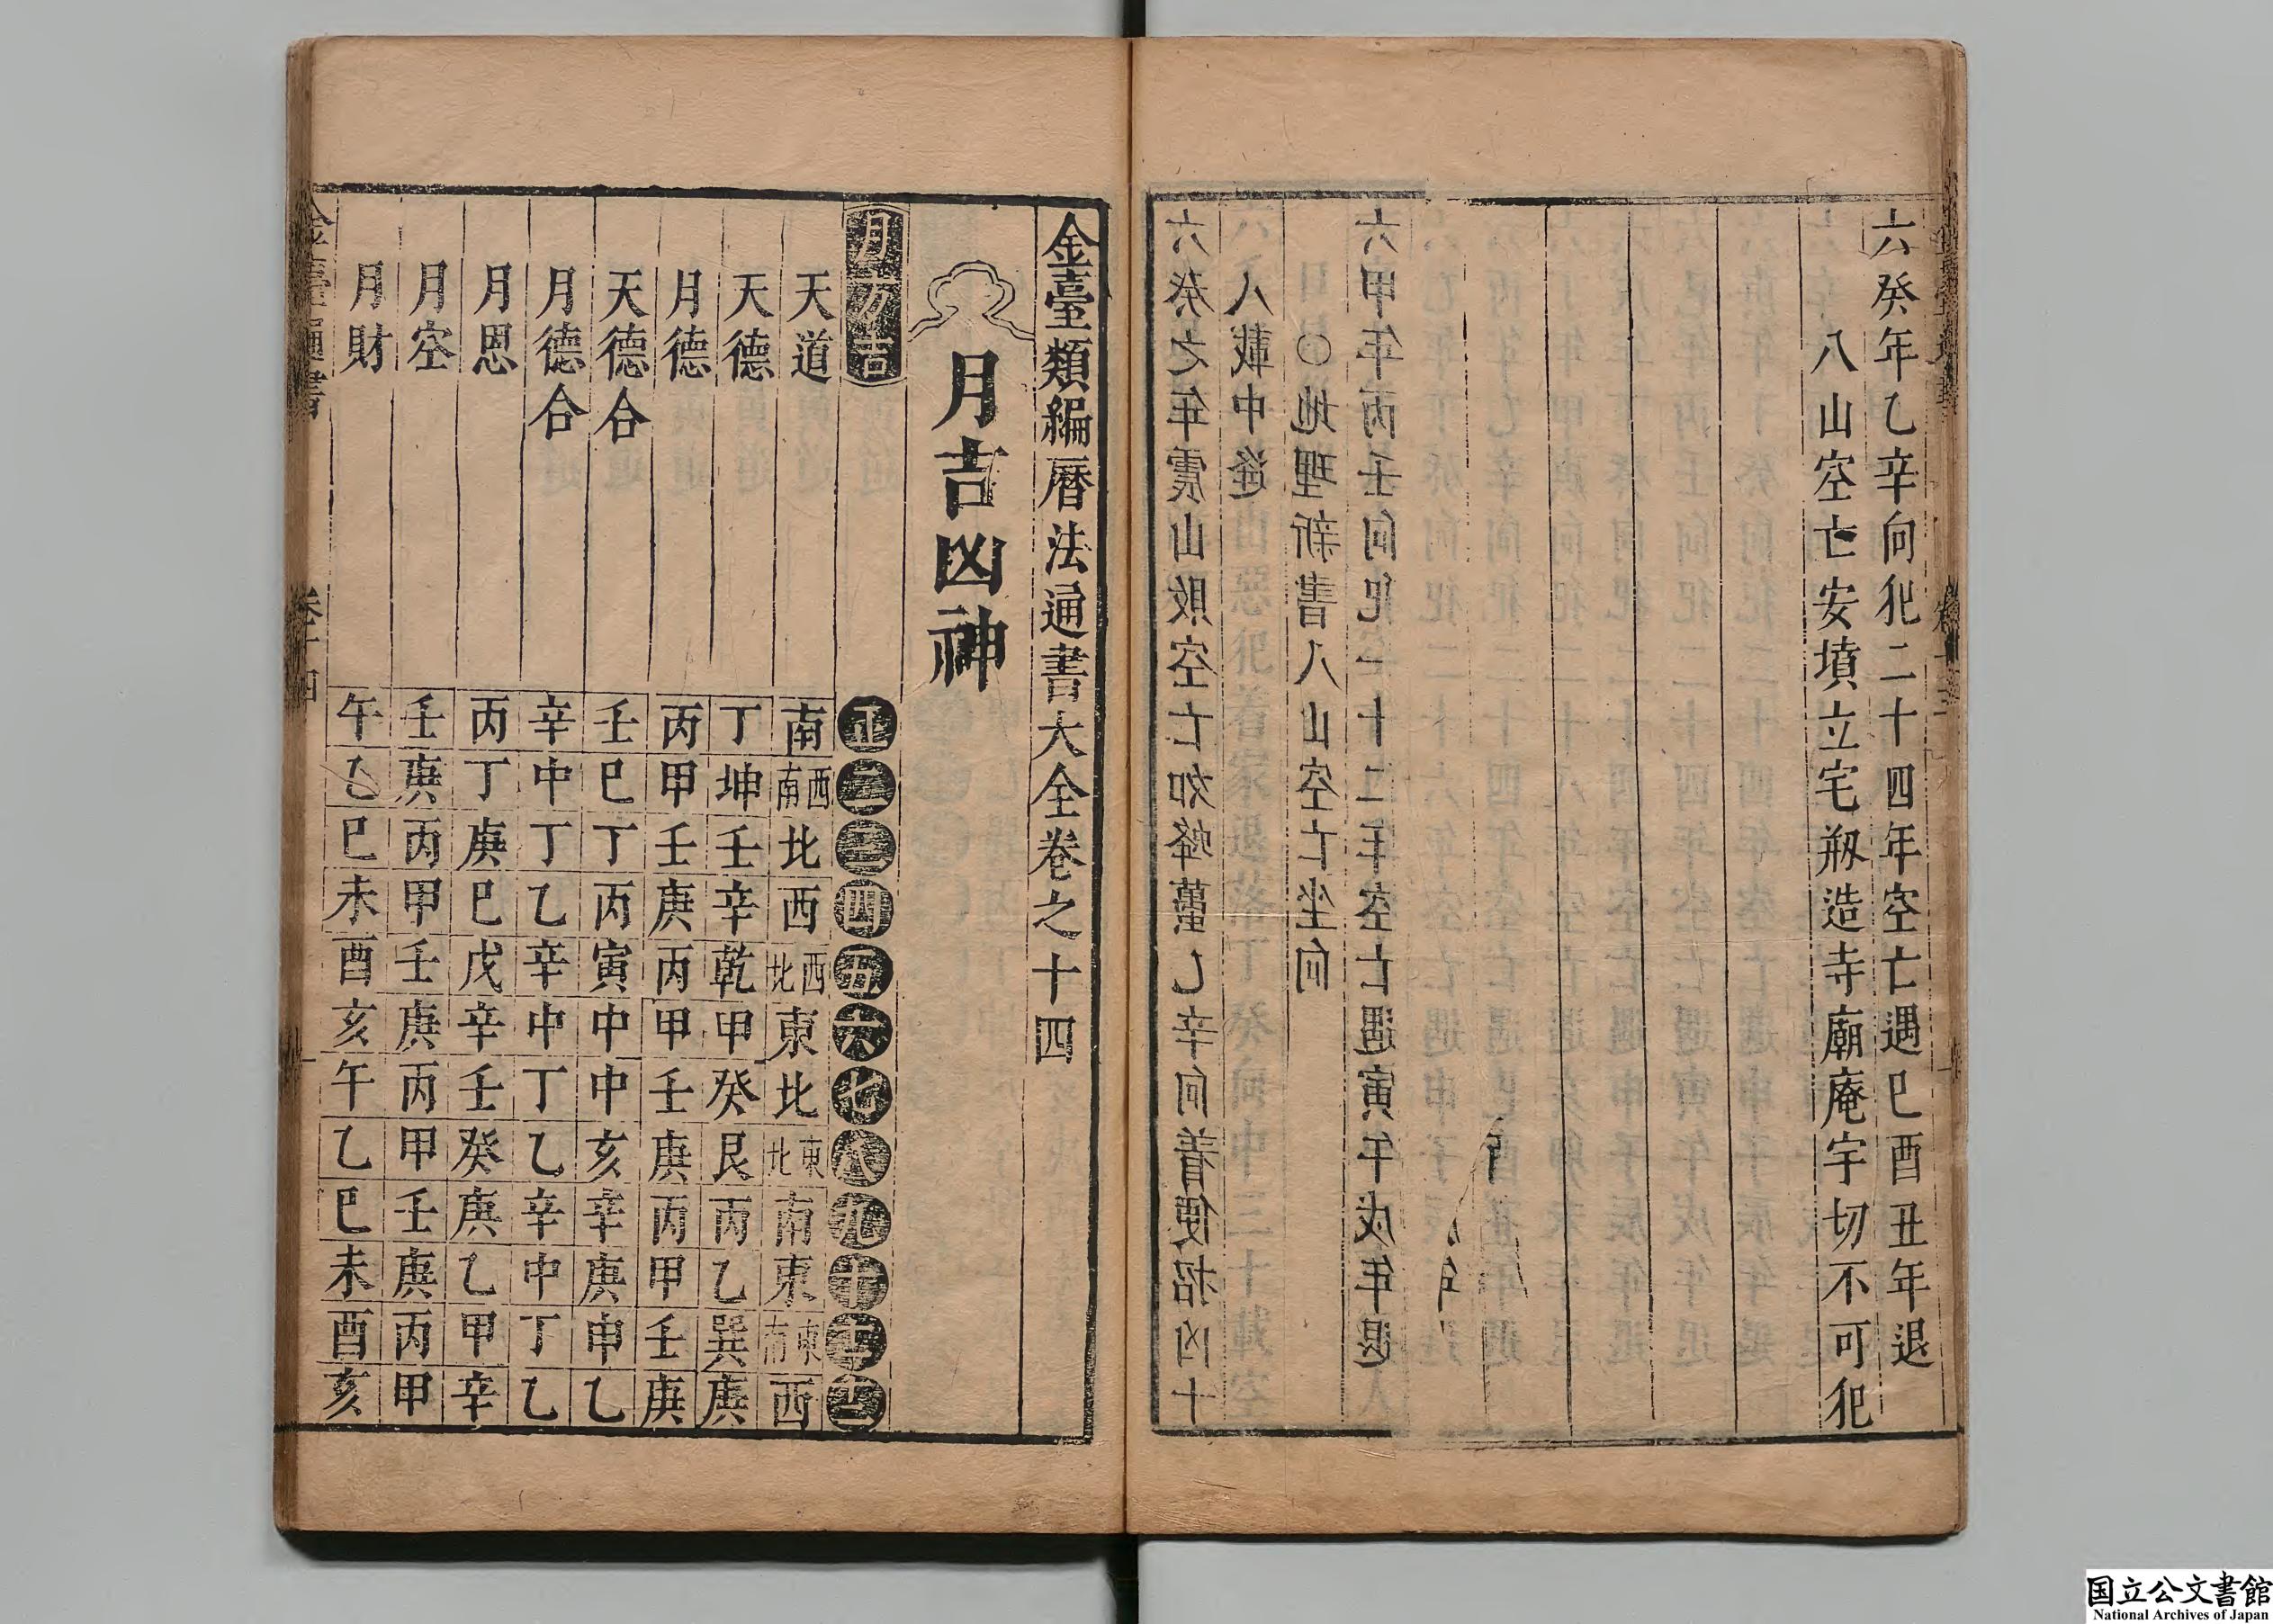 六癸年乙辛向犯二十四年空亡遇巳酉丑年退
八山空亡安墳立宅剏造寺廟庵宇切不可犯
六甲年丙壬向犯一十二年空亡遇寅午戌年退
○地理新書八山空亡坐向
八載中逢
六癸之年震山敗空亡如蜂蠆乙辛向著便招凶十
金臺類編曆法通書大全卷之十四
月吉凶神
月方吉 正 二 三 四 五 六 七 八 九 十 十一 十二
天道 南 西南 北 西 西北 東 北 東北 南 東 東南 西
天德 丁 坤 壬 辛 乾 甲 癸 艮 丙 乙 巽 庚
月德 丙 甲 壬 庚 丙 甲 壬 庚 丙 甲 壬 庚
天德合 壬 巳 丁 丙 寅 中 中 亥 辛 庚 申 乙
月德合 辛 中 丁 乙 辛 中 丁 乙 辛 中 丁 乙
月恩 丙 丁 庚 巳 戊 辛 壬 癸 庚 乙 甲 辛
月空 壬 庚 丙 甲 壬 庚 丙 甲 壬 庚 丙 甲
月財 午 乙 巳 未 酉 亥 午 乙 巳 未 酉 亥
金臺通書 卷十四
国立公文書館
National Archives of Japan